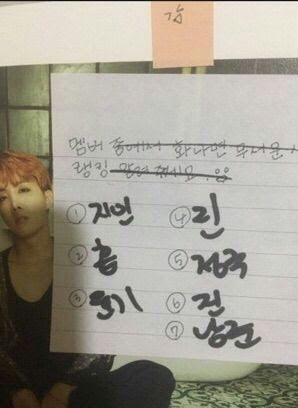 멤버 중에서 화나면 무서운
랭킹 주세요
① 지민
② 홉
③ 윤기
④
⑤ 정국
⑥ 진
⑦ 남준